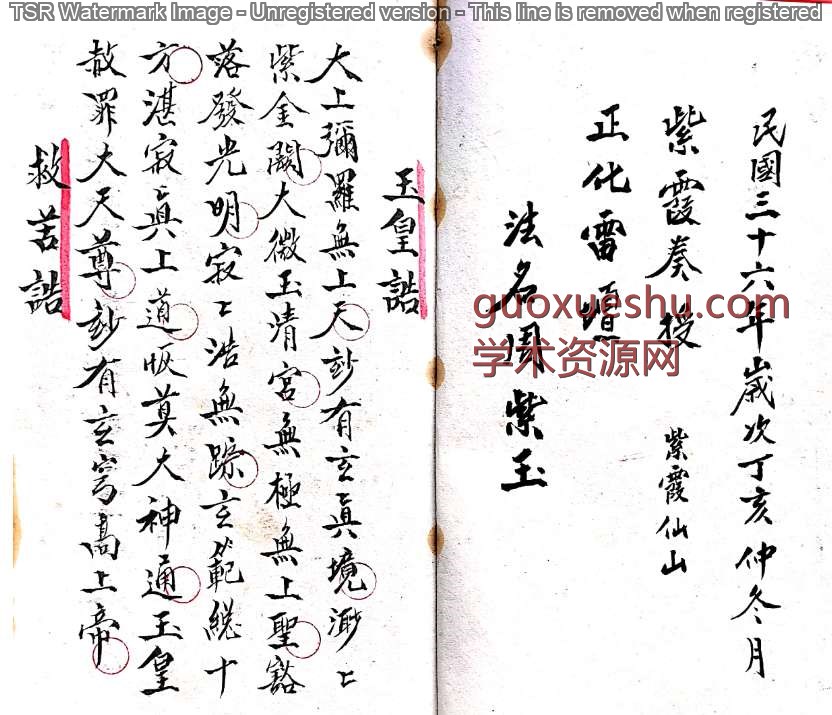 TSR Watermark Image - Unregistered version - This line is removed when registered
民國三十六年歲次丁亥仲冬月
紫霞奏授 紫霞仙山
正化雷壇
法名周紫玉
guoxueshu.com
学术资源网
玉皇誥
大上彌羅無上天玅有玄眞境渺〻
紫金闕大微玉清宮無極無上聖豁
落發光明寂〻浩無踪玄範総十
方湛寂眞上道恢莫大神通玉皇
赦罪大天尊玅有玄穹高上帝
救苦誥